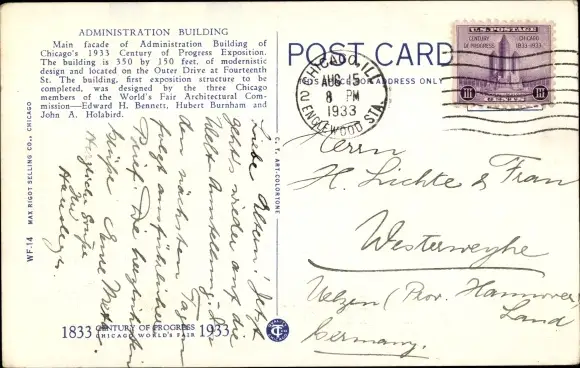 ADMINISTRATION BUILDING
Main facade of Administration Building of
Chicago's 1933 Century of Progress Exposition.
The building is 350 by 150 feet, of modernistic
design and located on the Outer Drive at Fourteenth
St. The building, first exposition structure to be
completed, was designed by the three Chicago
members of the World's Fair Architectural Com-
mission—Edward H. Bennett, Hubert Burnham and
John A. Holabird.
WF.14 MAX RIGOT SELLING CO., CHICAGO
Liebe Eltern! Jetzt
gehts wieder auf die
Welt Ausstellung. In
den nächsten Tagen
folgt ausführlicher
Brief. Die herzlichsten
Grüße Eure
Herzliche Grüße
1833 CENTURY OF PROGRESS 1933
CHICAGO WORLD'S FAIR
C. T. ART-COLORTONE
POST CARD
THIS SPACE FOR ADDRESS ONLY
CHICAGO, ILL.
AUG 15
8 PM
1933
ENGLEWOOD STA.
U.S. POSTAGE
CENTURY OF PROGRESS
CHICAGO 1833-1933
III CENTS III
Herrn
H. Lichte & Frau
Westerweyhe
Uelzen (Prov. Hannover
Land
Germany.